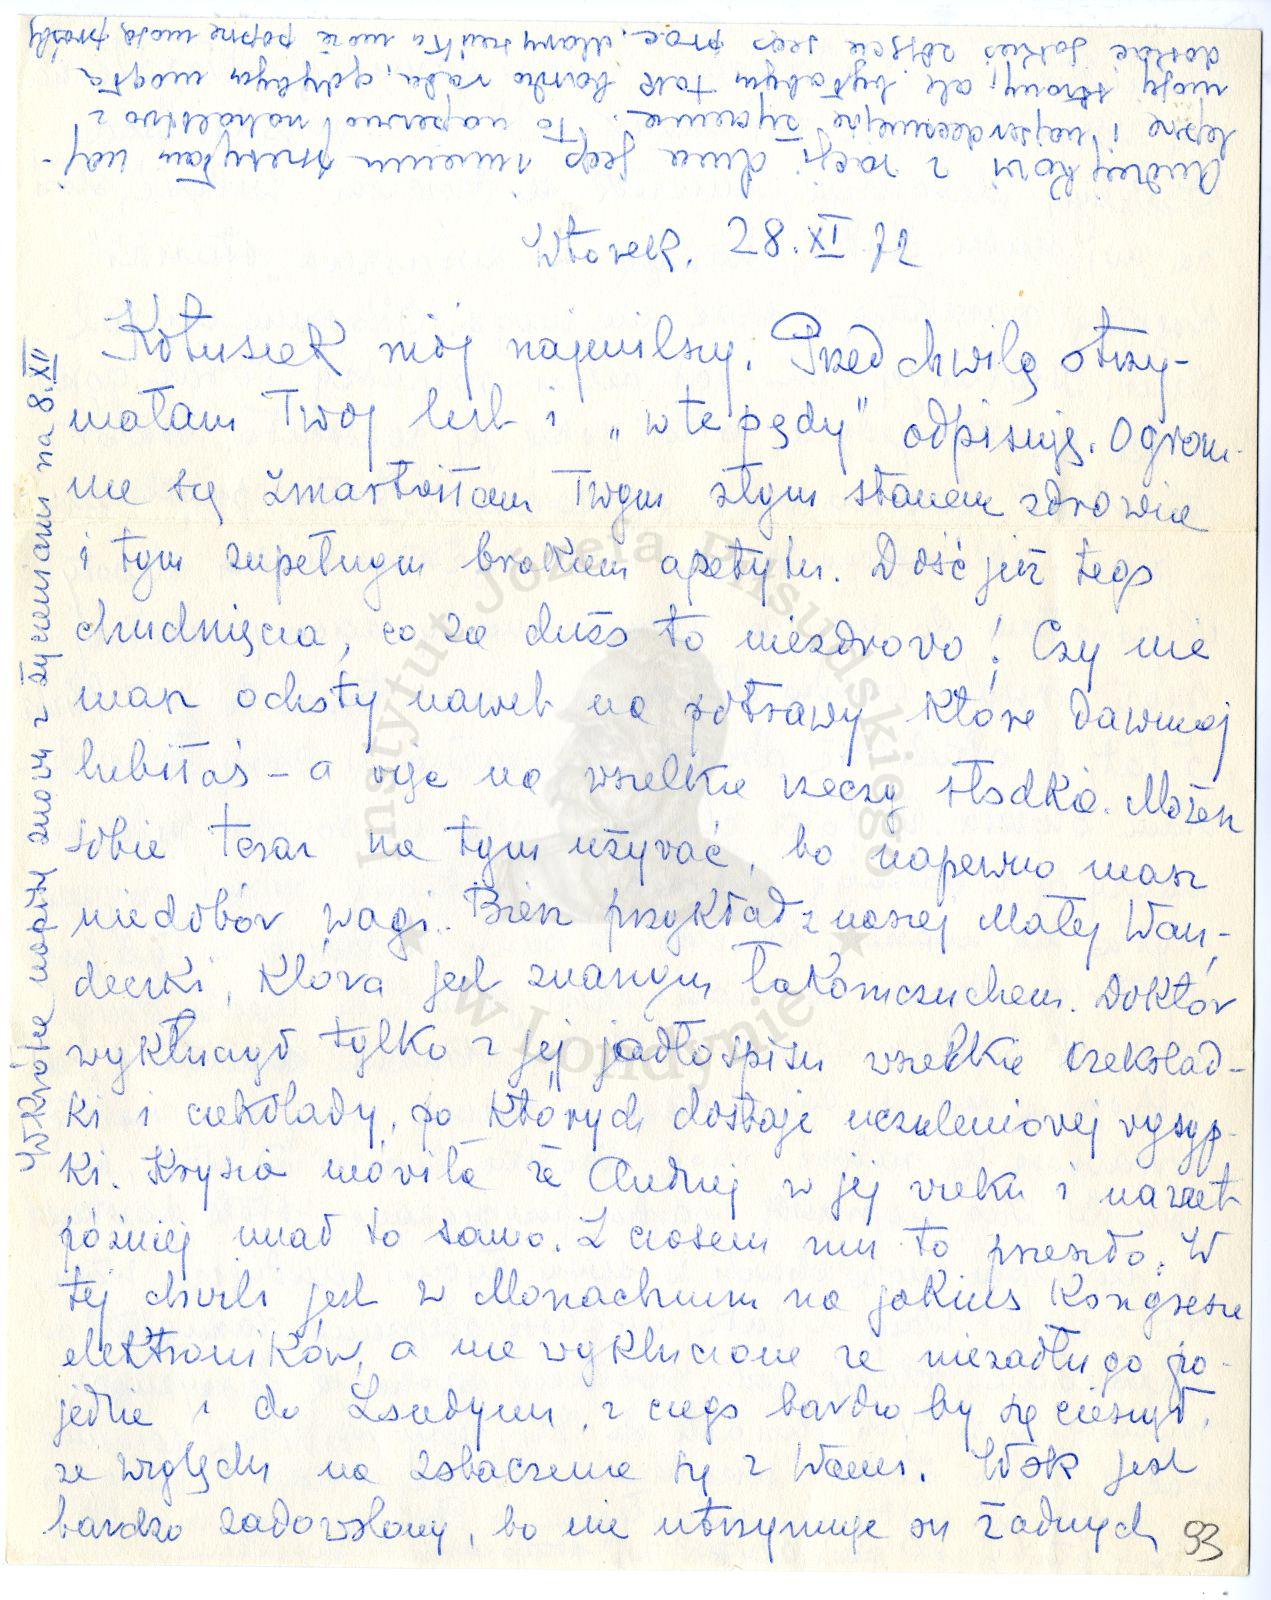 Wtorek. 28.XI.72
Kotusiek mój najmilszy. Przed chwilą otrzy-
małam Twój list i „w te pędy" odpisuję. Ogrom-
nie się zmartwiłam Twym złym stanem zdrowia
i tym zupełnym brakiem apetytu. Dość już tego
chudnięcia, co za dużo to niezdrowo! Czy nie
masz ochoty nawet na potrawy które dawniej
lubiłaś – a więc na wszelkie rzeczy słodkie. Możesz
sobie teraz na tym używać, bo napewno masz
niedobór wagi. Bierz przykład z naszej Małej Wan-
deczki, która jest znanym łakomczuchem. Doktór
wykluczył tylko z jej jadłospisu wszelkie czekolad-
ki i czekolady, po których dostaje uczuleniowej wysyp-
ki. Krysia mówiła że Andrzej w jej wieku i nawet
później miał to samo. Z czasem mu to przeszło. W
tej chwili jest w Monachium na jakimś Kongresie
elektroników, a nie wykluczone że niezadługo po-
jedzie i do Londynu, z czego bardzo by się cieszył,
ze względu na zobaczenie się z Wami. Wok jest
bardzo zadowolony, bo nie utrzymuje on żadnych
93
Wkrótce napiszę znowu z życzeniami na 8.XII
Andrzejkowi z racji dnia Jego imienin przesyłam naj-
lepsze i najserdeczniejsze życzenia. To napewno natręctwo z
mojej strony, ale byłabym tak bardzo rada, gdybym mogła
dostać jakieś zdjęcie Jego prac. Mamusieńka może poprze moją prośbę